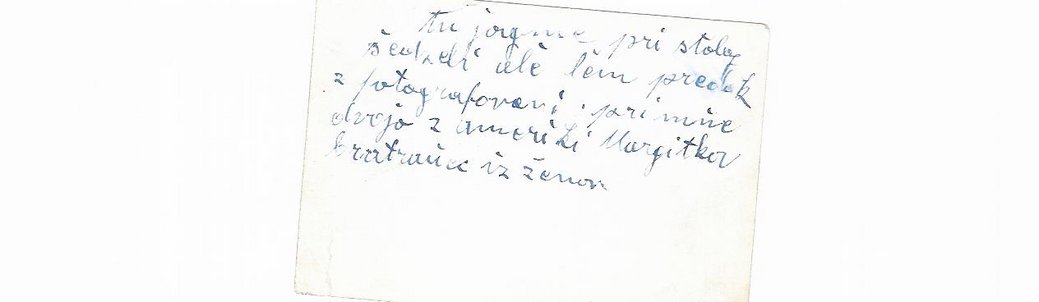 tu jozme pri stoloj
šedzeli ale lem predek
z fotografovani, pri mne
dvojo z ameriki Margitkov
bratranec iz ženou